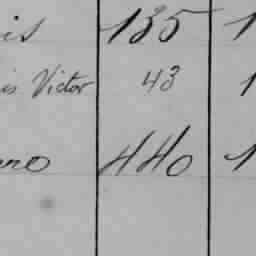 is 135 1
is Victor 43 1
no 440 1